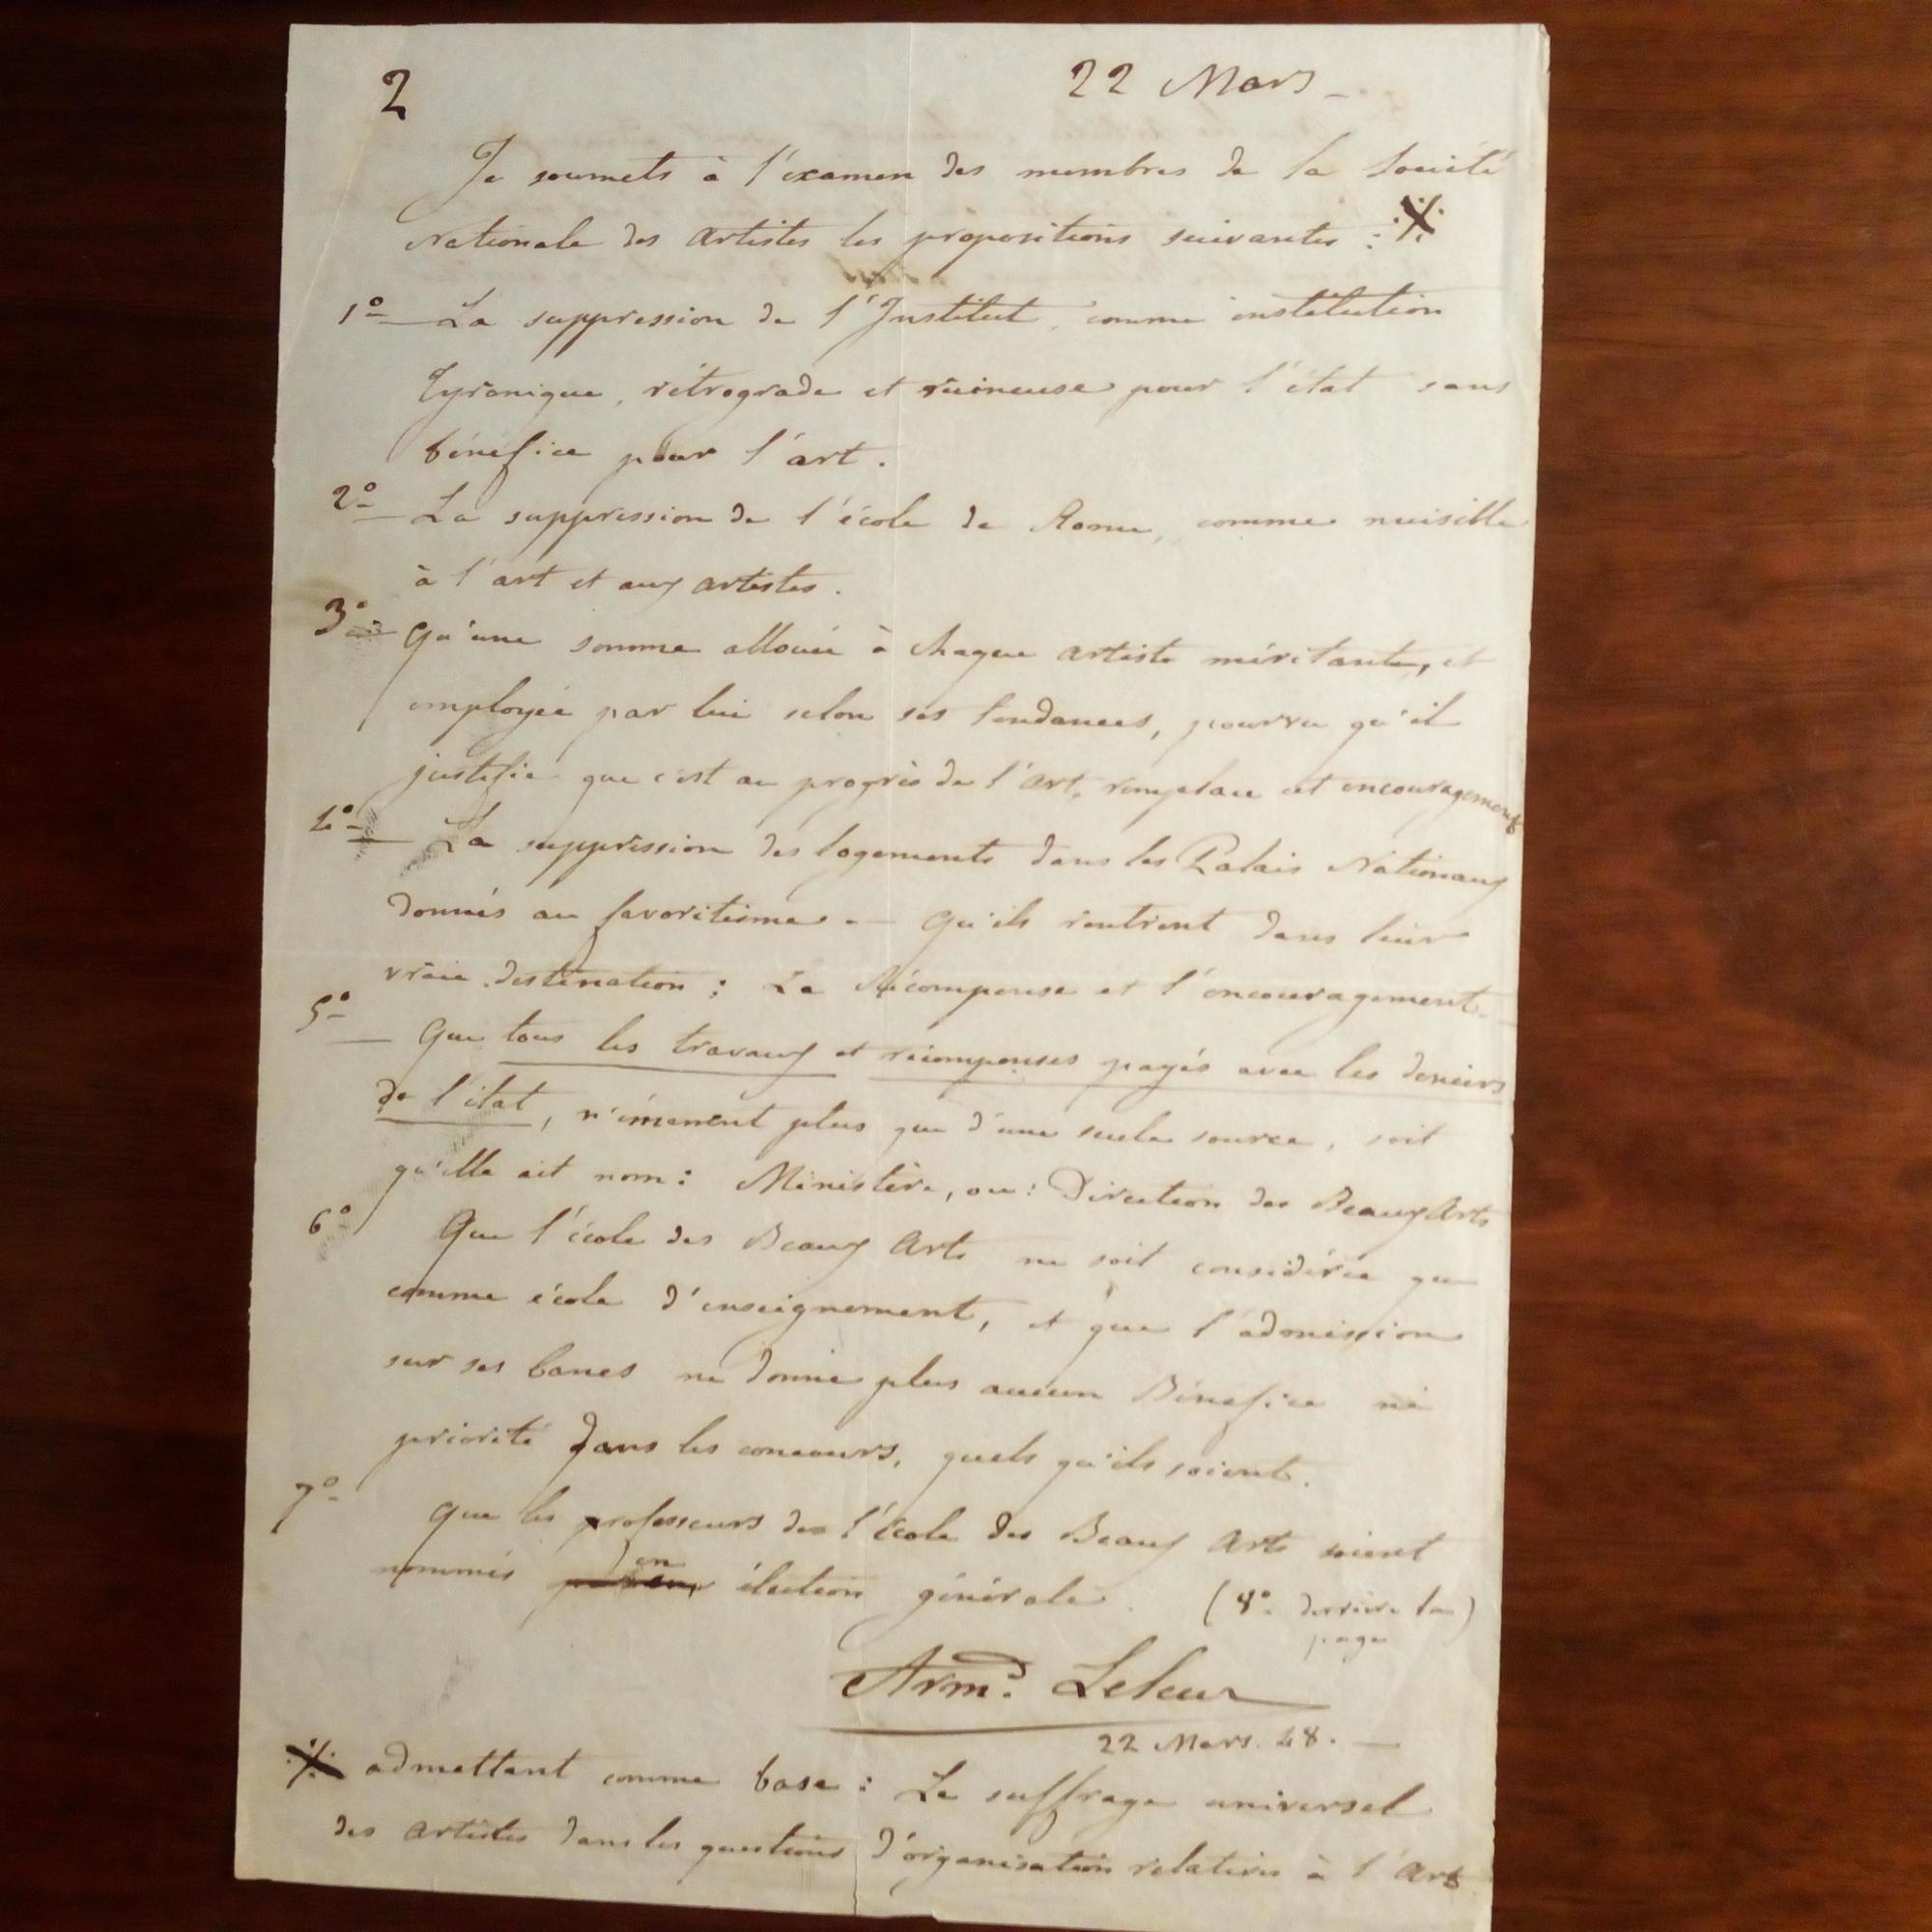 2
22 Mars _
Je soumets à l'éxamen des membres de la Société
Nationale des Artistes les propositions suivantes :
1º _ La suppression de l'Institut, comme institution
Tyranique, rétrograde et ruineuse pour l'état sans
bénéfice pour l'art.
2º _ La suppression de l'école de Rome, comme nuisible
à l'art et aux artistes.
3º _ Qu'une somme allouée à chaque artiste méritante, et
employée par lui selon ses tendances, pourvu qu'il
justifie que c'est au progrès de l'art, remplace cet encouragement
4º _ La suppression des logements dans les Palais Nationaux
donnés au favoritisme. _ Qu'ils rentrent dans leur
vraie destination : La Récompense et l'encouragement. _
5º _ Que tous les travaux et récompenses payés avec les deniers
de l'état, n'émanent plus que d'une seule source, soit
qu'elle ait nom : Ministère, ou : Direction des Beaux Arts
6º Que l'école des Beaux Arts ne soit considérée que
comme école d'enseignement, et que l'admission
sur ses bancs ne donne plus aucun Bénéfice ni
priorité dans les concours, quels qu'ils soient.
7º Que les professeurs de l'école des Beaux Arts soient
nommés en élection générale. (8º derrière la
page)
Arm.d Leleux
22 Mars 48. _
admettant comme base : Le suffrage universel
des artistes dans les questions d'organisation relatives à l'Art